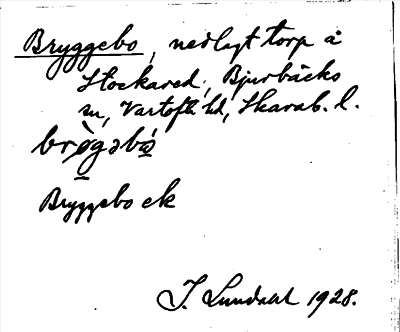 Bryggebo, nedlagt torp å
Stockared, Bjurbäcks
sn, Vartofta hd, Skarab. l.
brø̀gəbó
Bryggebo ek
J. Lundahl 1928.